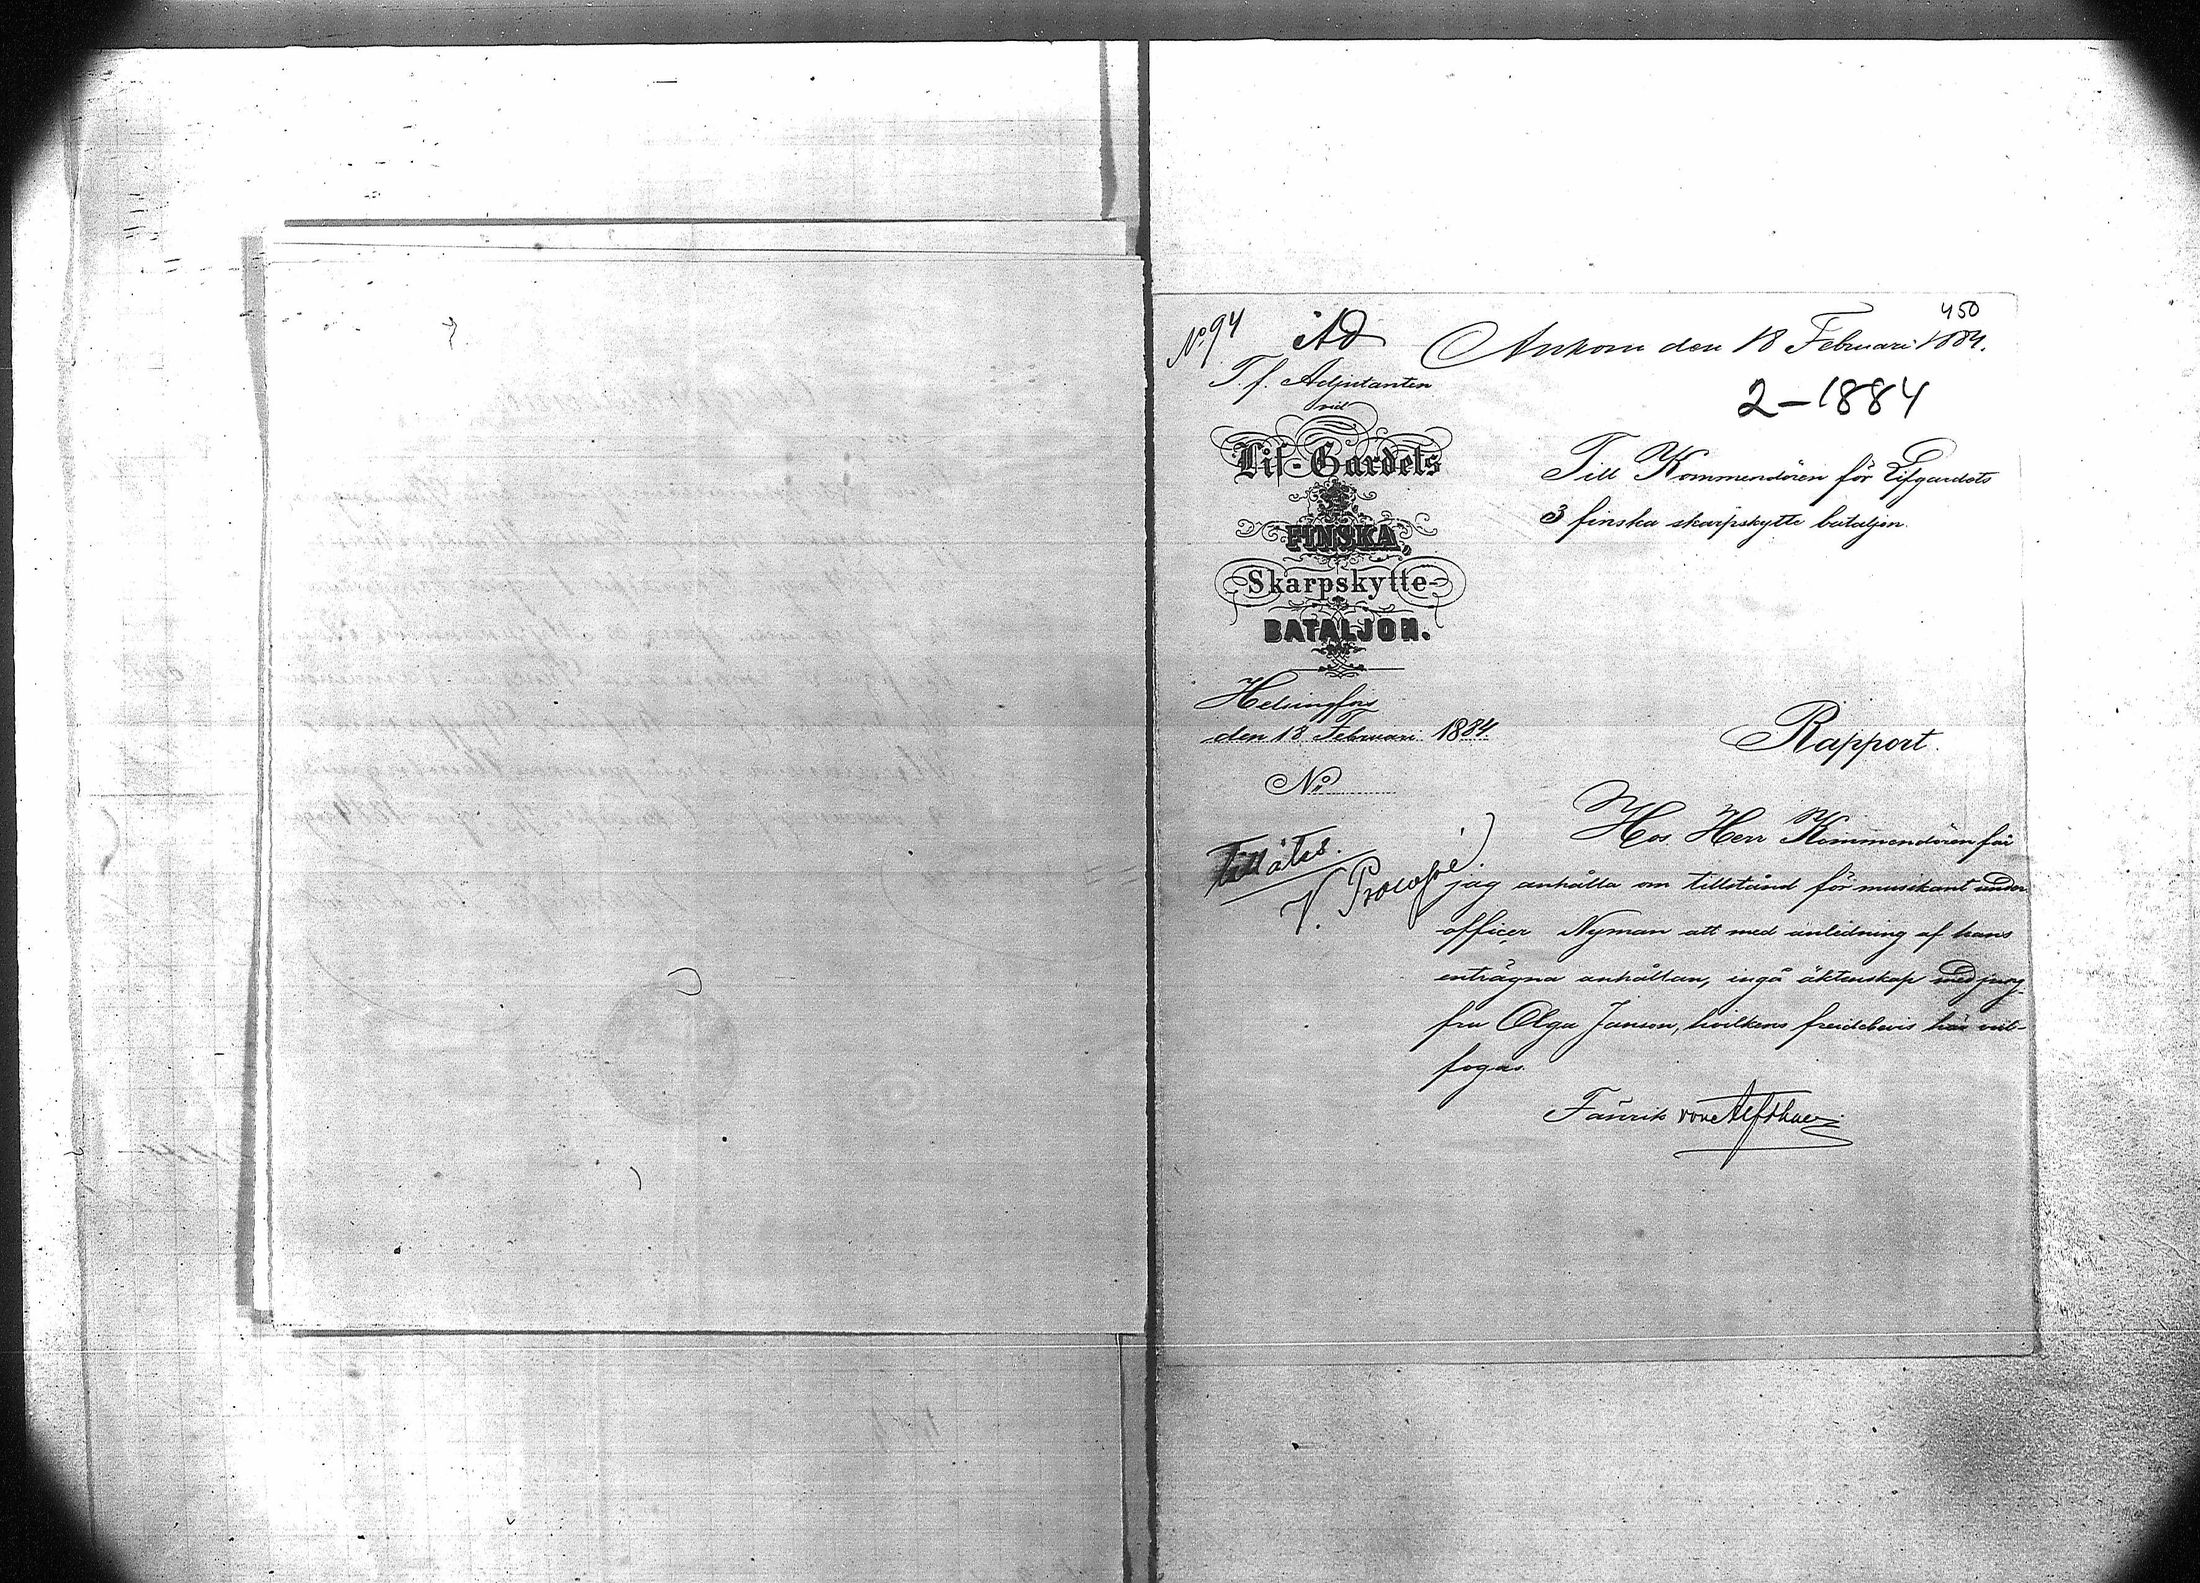 450
No 94
Ad
Ankom den 18 Februari 1884.
T. f. Adjutanten
vid
2–1884
Lif-Gardets
3
FINSKA,
Skarpskytte-
BATALJON.
Till Kommendören för Lifgardets
3 finska skarpskytte bataljon.
Helsingfors
den 18 Februari 1884.
No
Rapport.
Tillåtes.
V. Procopé.
Hos Herr Kommendören får
jag anhålla om tillstånd för musikant under
officer Nyman att med anledning af hans
enträgna anhållan, ingå äktenskap med jung-
fru Olga Janson, hvilkens frejdebevis här vid-
fogas.
Fänrik von Alfthan